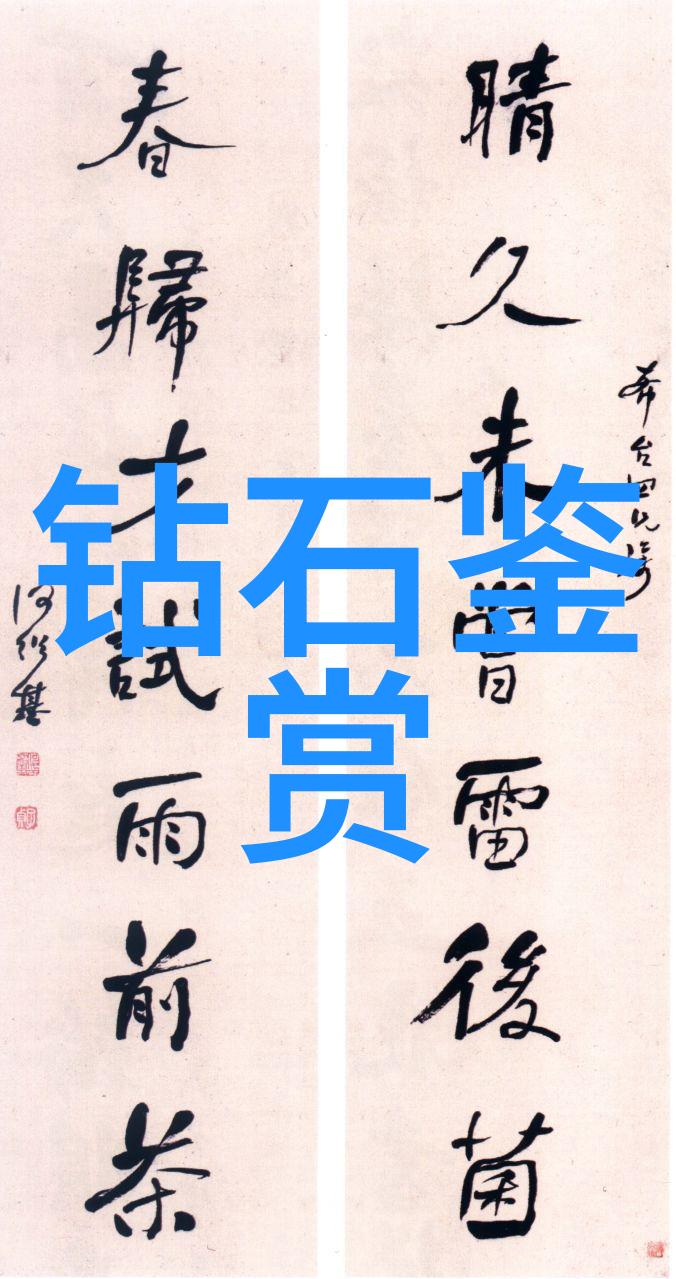 晴久未嘗雷後菌
台四兄
春歸才試雨前茶
何紹基
钻石鉴
赏